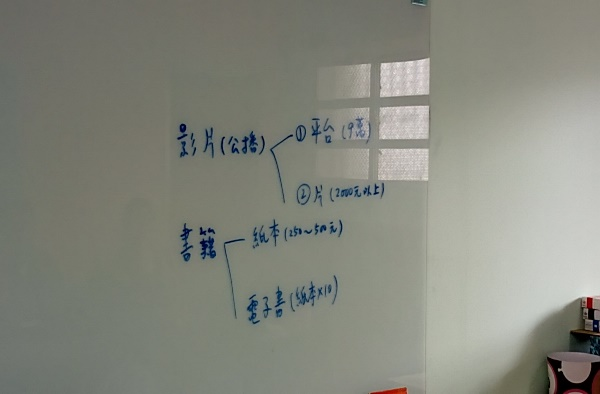 影片(公播)
①平台(9萬)
②片(2000元以上)
書籍
紙本(250~500元)
電子書(紙本×10)